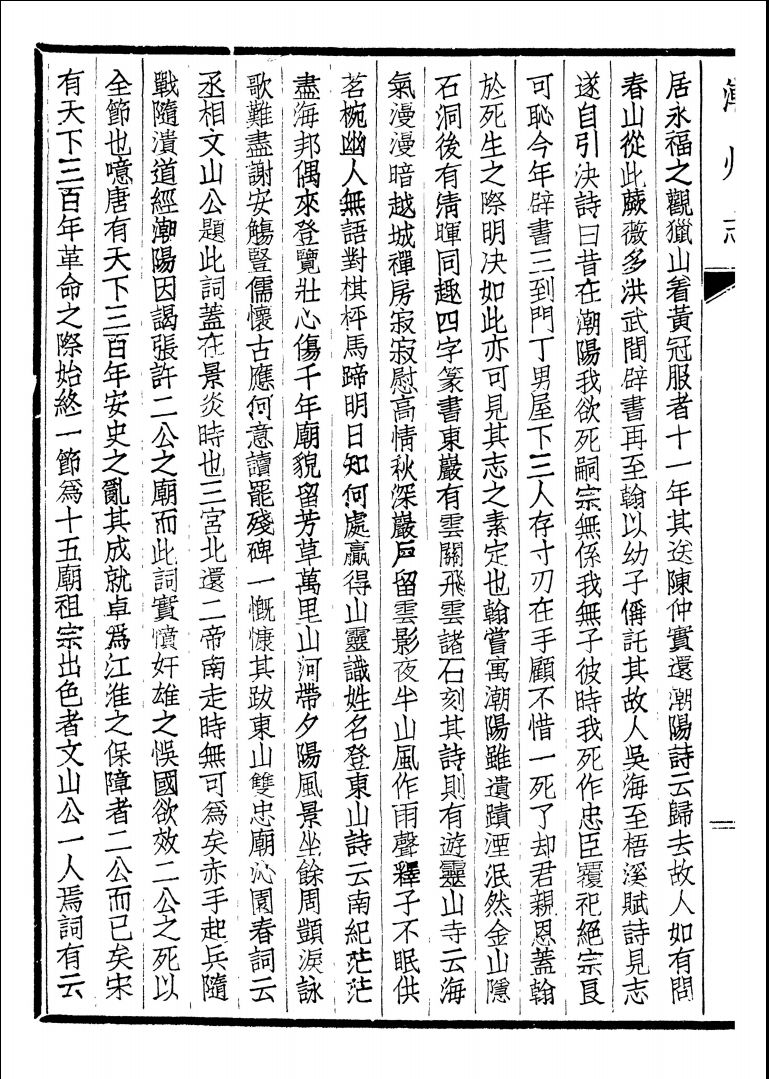 潮州志
居永福之觀獵山着黃冠服者十一年其送陳仲實還潮陽詩云歸去故人如有問
春山從此蕨薇多洪武間辟書再至翰以幼子偁託其故人吳海至梧溪賦詩見志
遂自引決詩曰昔在潮陽我欲死嗣宗無係我無子彼時我死作忠臣覆祀絕宗良
可恥今年辟書三到門丁男屋下三人存寸刃在手顧不惜一死了却君親恩蓋翰
於死生之際明決如此亦可見其志之素定也翰嘗寓潮陽雖遺蹟湮泯然金山隱
石洞後有清暉同趣四字篆書東巖有雲關飛雲諸石刻其詩則有遊靈山寺云海
氣漫漫暗越城禪房寂寂慰高情秋深巖戶留雲影夜半山風作雨聲釋子不眠供
茗椀幽人無語對棋枰馬蹄明日知何處贏得山靈識姓名登東山詩云南紀茫茫
盡海邦偶來登覽壯心傷千年廟貌留芳草萬里山河帶夕陽風景坐餘周顗淚詠
歌難盡謝安觴豎儒懷古應何意讀罷殘碑一慨慷其跋東山雙忠廟沁園春詞云
丞相文山公題此詞蓋在景炎時也三宮北還二帝南走時無可為矣赤手起兵隨
戰隨潰道經潮陽因謁張許二公之廟而此詞實憤奸雄之悞國欲效二公之死以
全節也噫唐有天下三百年安史之亂其成就卓為江淮之保障者二公而已矣宋
有天下三百年革命之際始終一節為十五廟祖宗出色者文山公一人焉詞有云